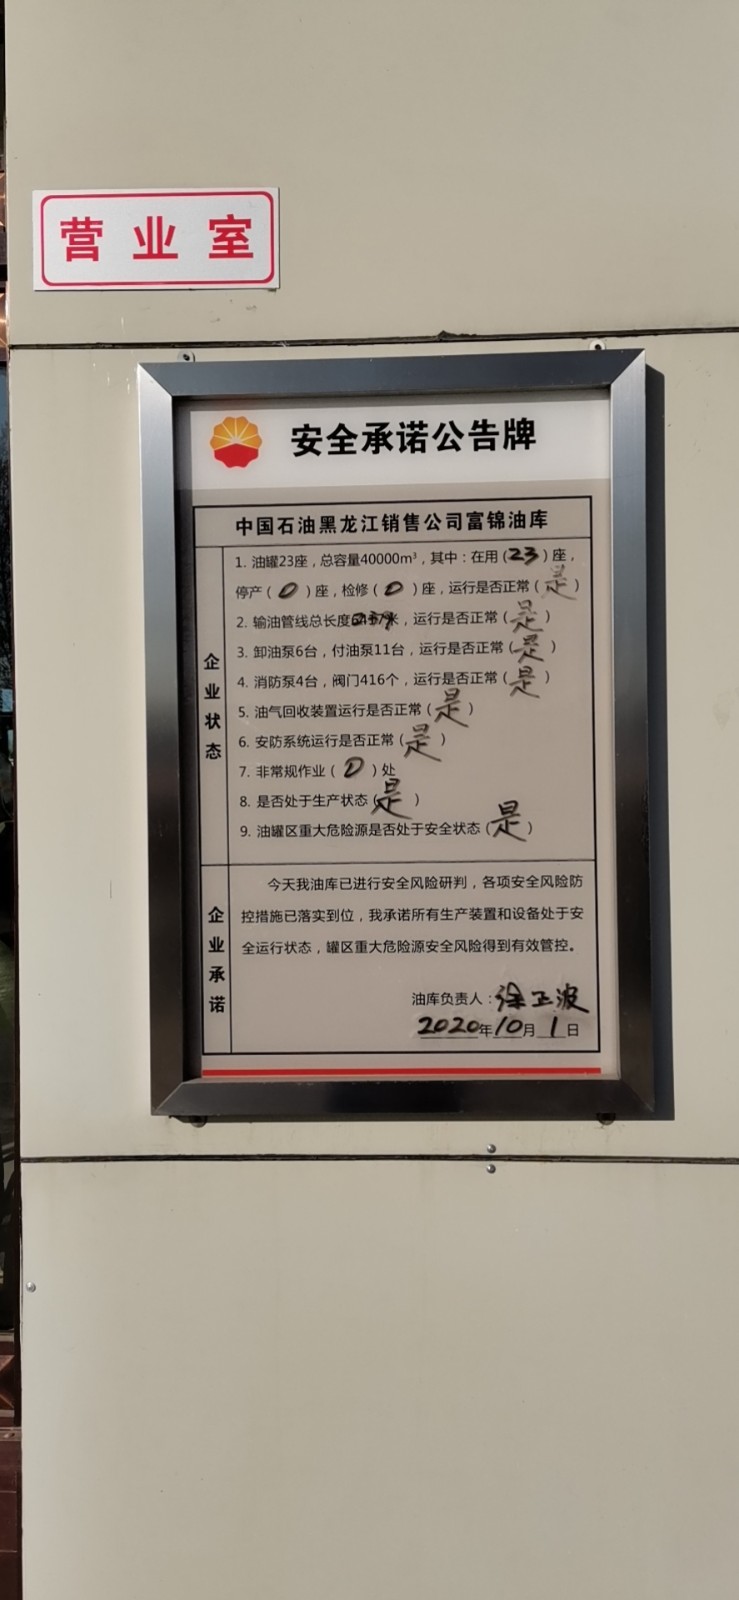 营业室
安全承诺公告牌
中国石油黑龙江销售公司富锦油库
企业状态
1. 油罐23座，总容量40000m³，其中：在用（23）座，
停产（0）座，检修（0）座，运行是否正常（是）
2. 输油管线总长度米，运行是否正常（是）
3. 卸油泵6台，付油泵11台，运行是否正常（是）
4. 消防泵4台，阀门416个，运行是否正常（是）
5. 油气回收装置运行是否正常（是）
6. 安防系统运行是否正常（是）
7. 非常规作业（0）处
8. 是否处于生产状态（是）
9. 油罐区重大危险源是否处于安全状态（是）
企业承诺
今天我油库已进行安全风险研判，各项安全风险防
控措施已落实到位，我承诺所有生产装置和设备处于安
全运行状态，罐区重大危险源安全风险得到有效管控。
油库负责人：徐正波
2020年10月1日